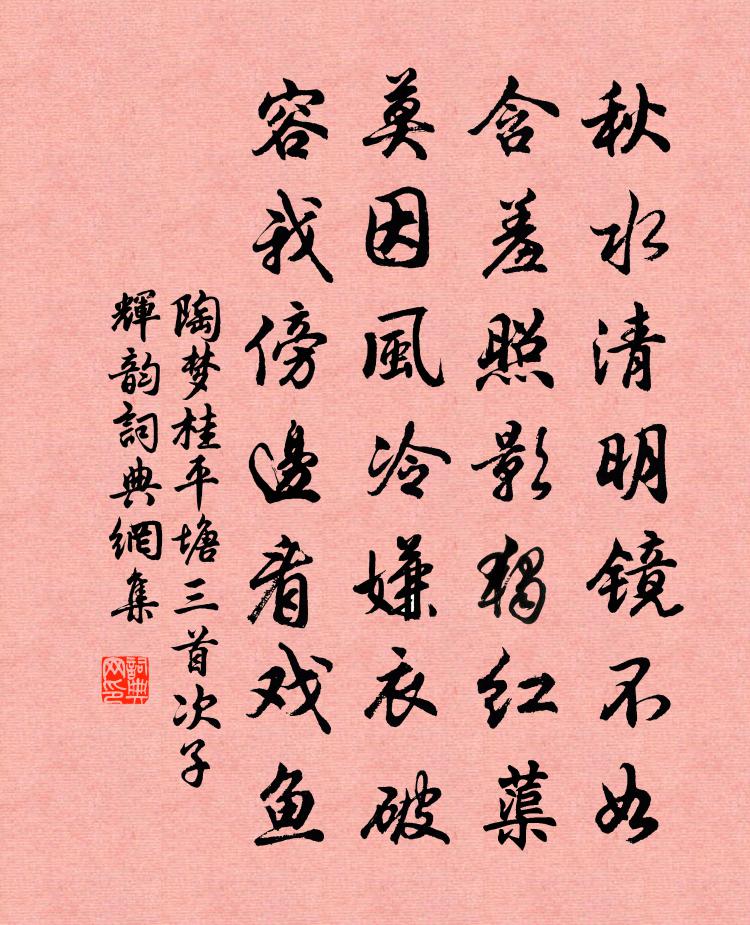 秋水清明镜不如
含羞照影独红蕖
莫因風冷嫌衣破
容我傍邊看戏鱼
陶梦桂平塘三首次子
輝韵詞典網集
詞典网印